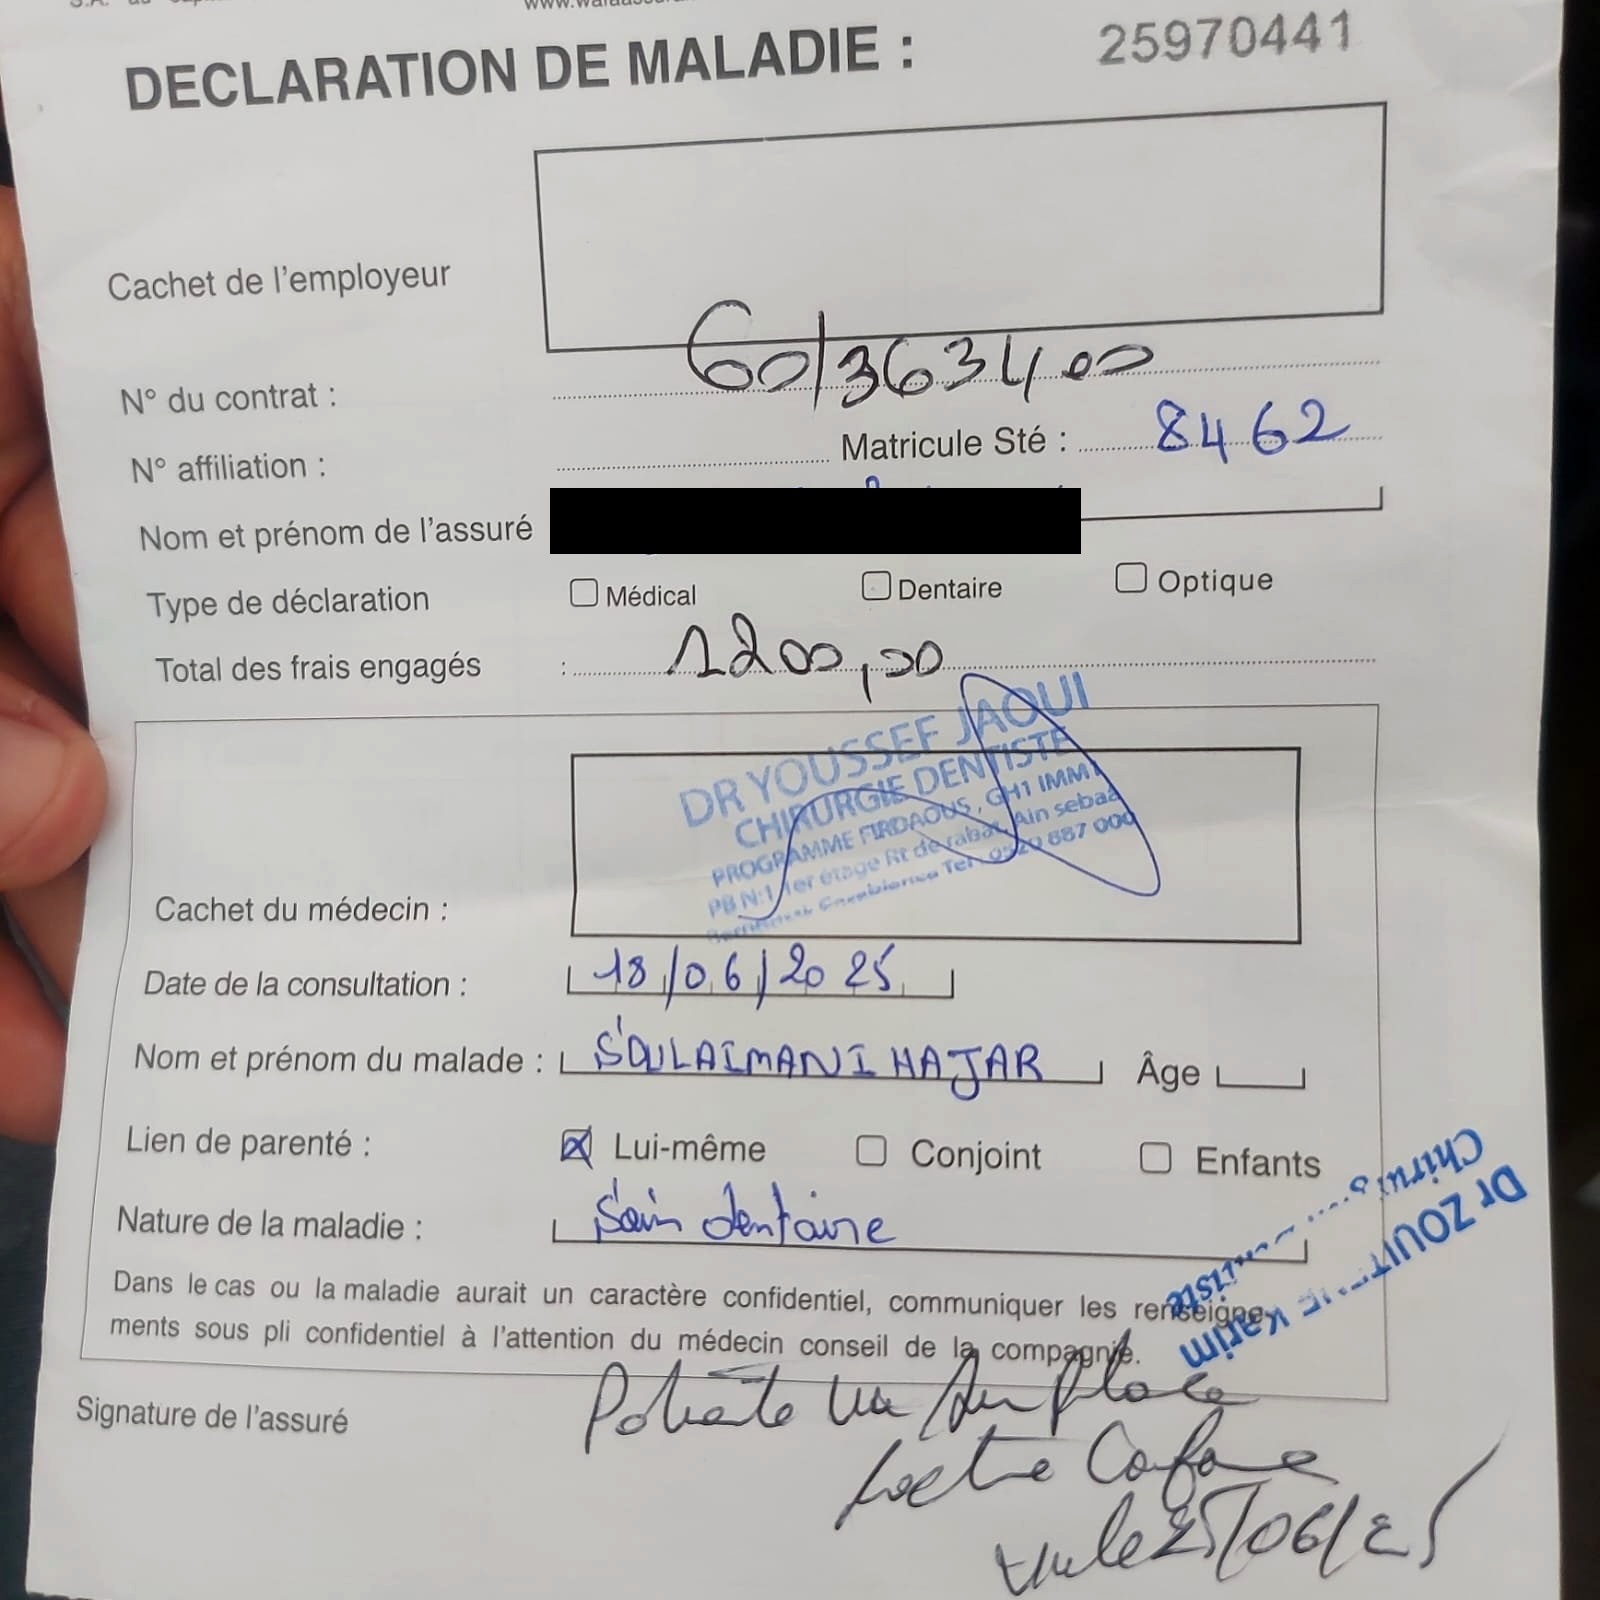 DECLARATION DE MALADIE :
25970441
Cachet de l'employeur
N° du contrat : 60/3634,00
N° affiliation : Matricule Sté : 8462
Nom et prénom de l'assuré
Type de déclaration Médical Dentaire Optique
Total des frais engagés : 1200,00
DR YOUSSEF JAOUI
CHIRURGIE DENTISTE
PROGRAMME FIRDAOUS, GH1 IMM
PB N:1 1er étage Rt de rabat, Ain sebaa
Casablanca Tel: 0520 887 000
Cachet du médecin :
Date de la consultation : 18/06/2025
Nom et prénom du malade : SOULAIMANI HAJAR Âge
Lien de parenté : Lui-même Conjoint Enfants
Nature de la maladie : Soin dentaire
Dans le cas ou la maladie aurait un caractère confidentiel, communiquer les renseigne-
ments sous pli confidentiel à l'attention du médecin conseil de la compagnie.
Dr Karim
Signature de l'assuré
25/06/25